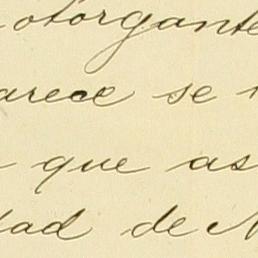 otorgante
arece se
que as
dad de